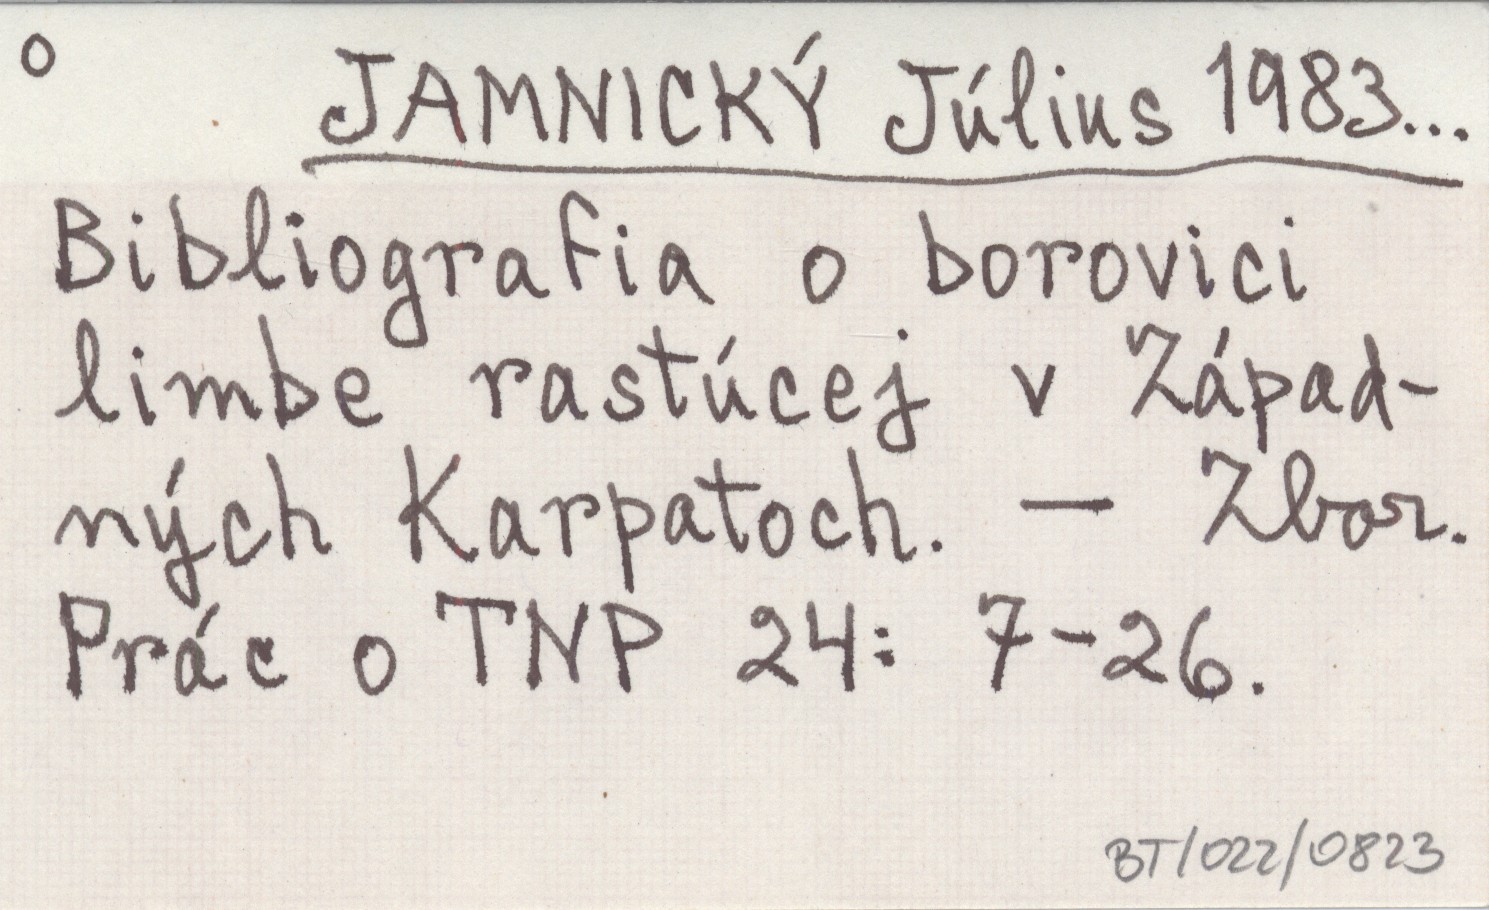 o
JAMNICKÝ Július 1983...
Bibliografia o borovici
limbe rastúcej v Západ-
ných Karpatoch. — Zbor.
Prác o TNP 24: 7-26.
BT/022/0823